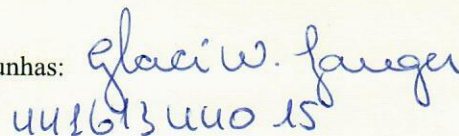 unhas: Glaci W. Janger
441613440 15